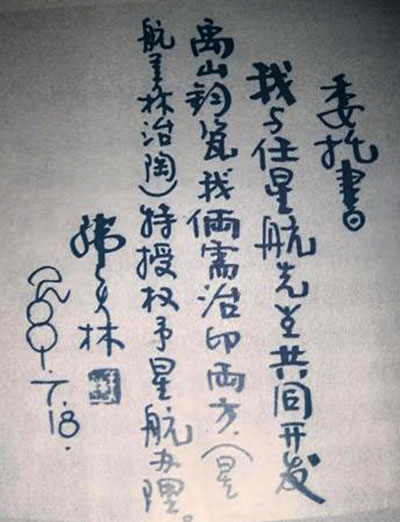 委托書。
我与任星航先生共同开发
禹山钧瓷我俩需治印両方（星
航美林治陶）特授权予星航办理。
韩美林
2001.7.18.